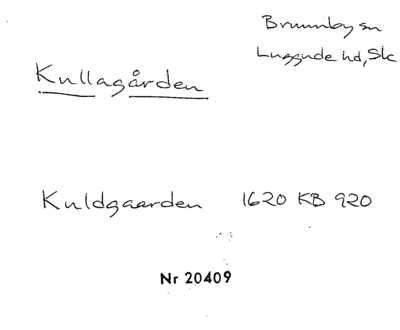 Brunnby sn
Luggude hd, Sk
Kullagården
Kuldgaarden 1620 KB 920
Nr 20409